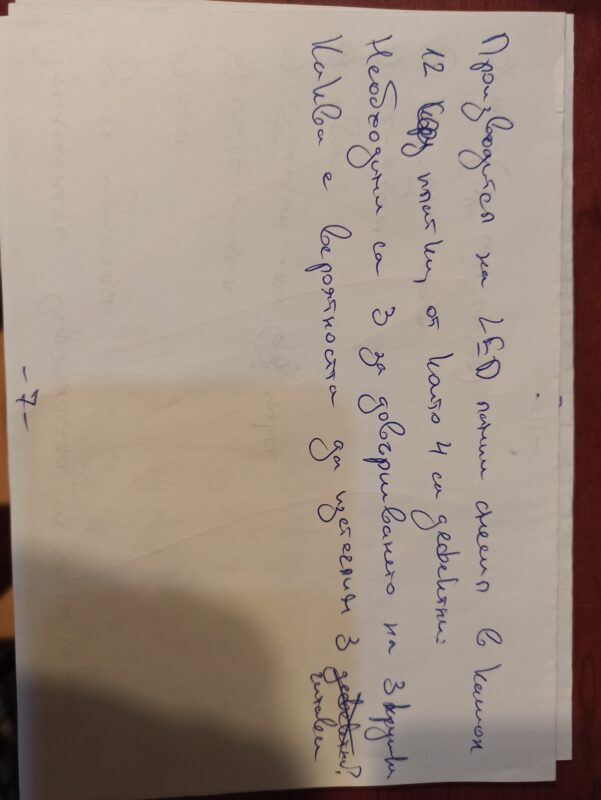 Производител на LED лампи смесил в кашон
12 платки, от които 4 са дефектни.
Необходими са 3 за довършването на 3 крушки
Каква е вероятността да изтеглим 3 дефектни?
- 7 -